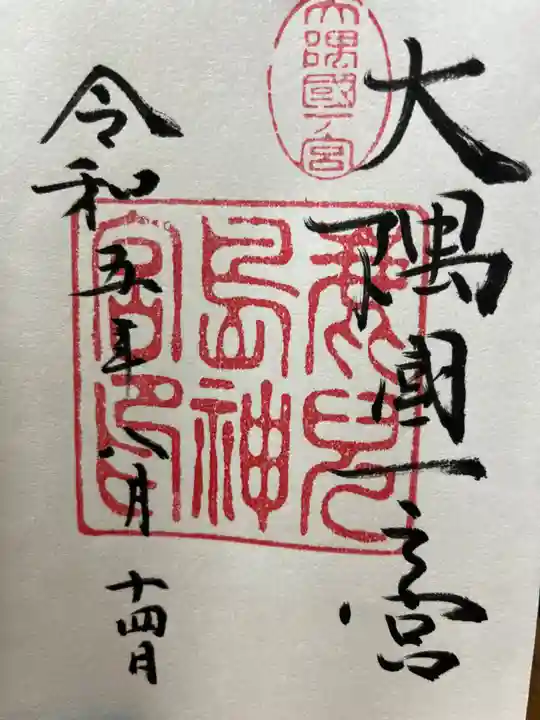 大隅國一之宮
大隅國一ノ宮
鹿兒島神宮印
令和五年八月十四日